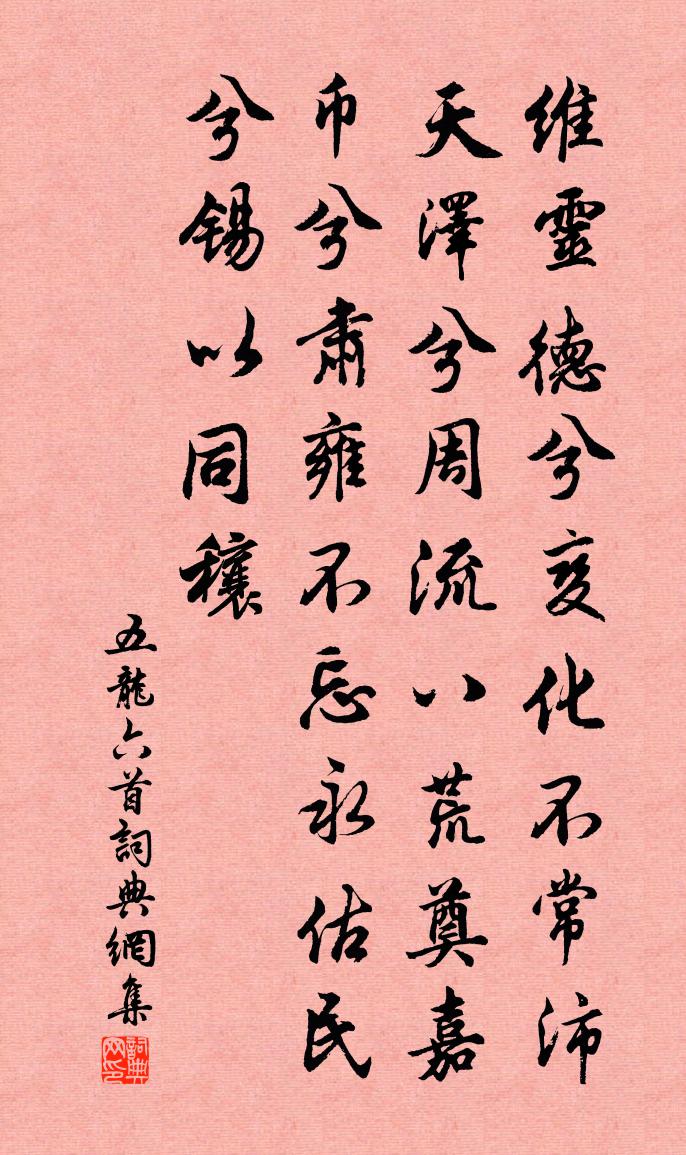 維靈德兮變化不常沛
天澤兮周流八荒奠嘉
币兮肅雍不忘永估民
兮錫以同穰
五龍六首詞典網集
詞典网印